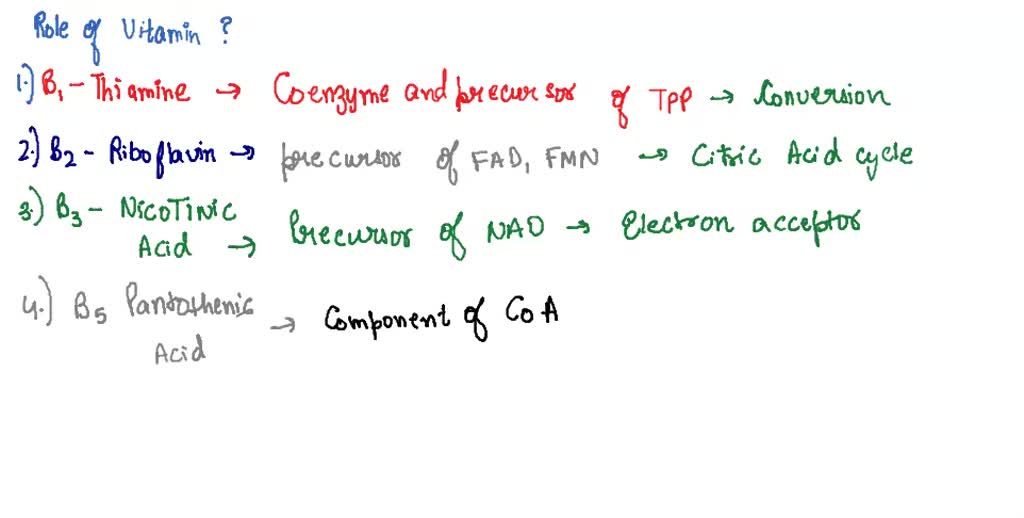 Role of Vitamin ?
1.) B1 - Thiamine → Coenzyme and precursor of TPP → Conversion
2.) B2 - Riboflavin → precursor of FAD, FMN → Citric Acid cycle
3.) B3 - NICOTINIC Acid → Precursor of NAD → Electron acceptor
4.) B5 Pantothenic Acid → Component of CoA